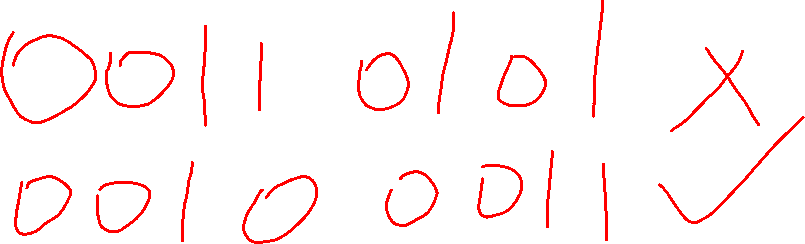 0011 0101 ✗
0010 0011 ✓